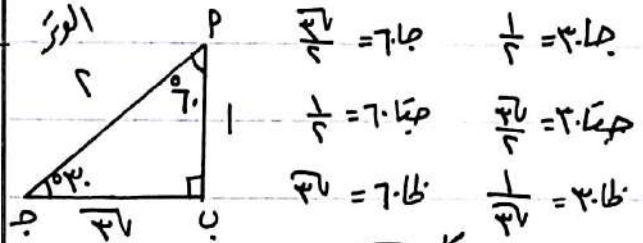 الوتر
٢
م
٦٠°
١
٣٠°
جـ
√٣
ب
جا ٣٠ = ١/٢ جا ٦٠ = √٣/٢
جتا ٣٠ = √٣/٢ جتا ٦٠ = ١/٢
ظا ٣٠ = ١/√٣ ظا ٦٠ = √٣